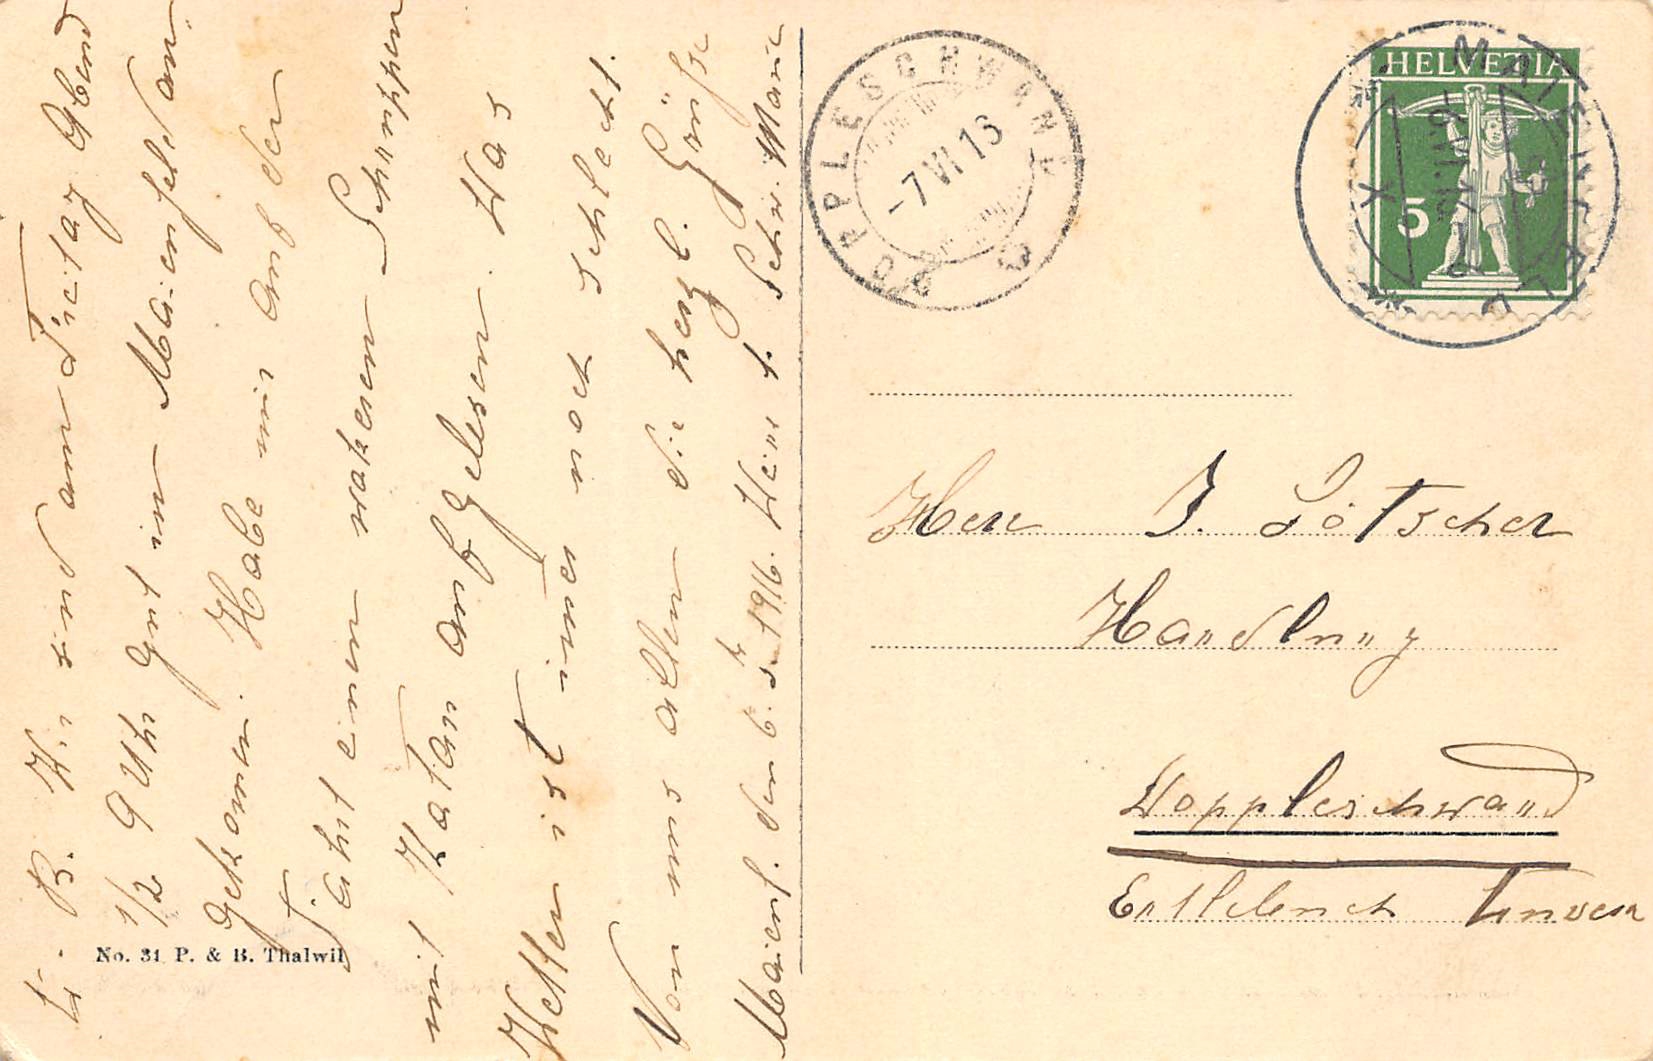 L. B. Wir sind am Freitag Abend
1/2 9 Uhr gut in Maienfeld an
gekommen. Habe mir auf der
Fahrt einen wakeren Schnuppen
mit Katan aufgelesen. Das
Wetter ist immer noch schlecht.
Von uns allen die herzl. Grüße
Maienf. den 6. 5. 1916.
Marie
No. 31 P. & B. Thalwil
DOPPLESCHWAND
-7 VI 16
HELVETIA
5
MAIENFELD
Herr J. Lötscher
Handlung
Doppleschwand
Entlebuch Luzern